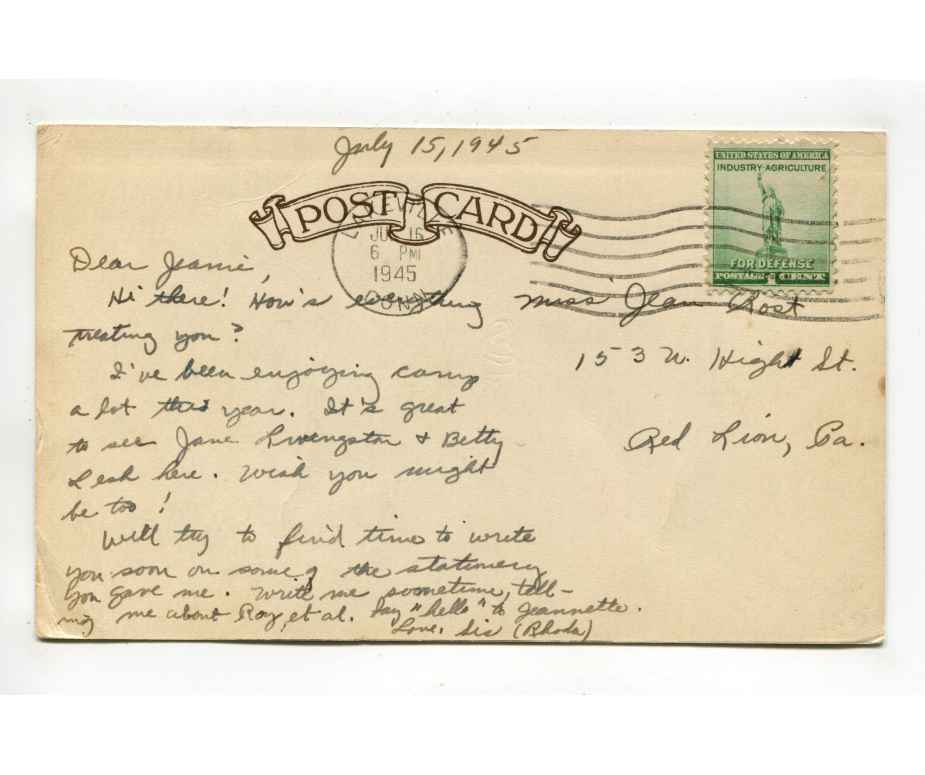 July 15, 1945
POST CARD
JUL 16
6 PM
1945
CONN
UNITED STATES OF AMERICA
INDUSTRY AGRICULTURE
FOR DEFENSE
POSTAGE 1 CENT
Dear Jeanie,
Hi there! How's everything
treating you?
I've been enjoying camp
a lot this year. It's great
to see Jane Livingston & Betty
Lesh here. Wish you might
be too!
Will try to find time to write
you soon on some of the stationery
you gave me. Write me sometime, tell-
ing me about Ray, et al. Say "hello" to Jeannette.
Love, Sis (Rhoda)
Miss Jean Rost
153 W. Hight St.
Red Lion, Pa.